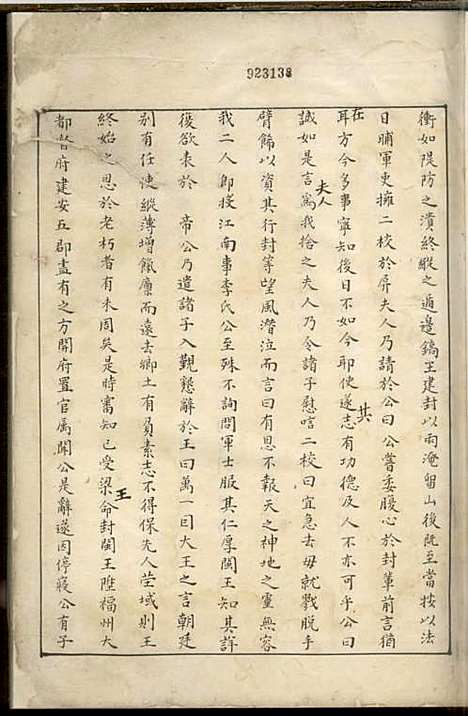 923138
衝如隄防之潰終縱之遁邊鎬王建封以雨淹留山後旣至當按以法
日晡軍吏擁二校於屏夫人乃請於公曰公嘗委腹心於封輩前言猶
在
耳方今多事寧知後日不如今耶使遂志有功德及人不亦可乎公曰
其
誠如是言爲我捨之夫人乃令諸子慰唁二校曰宜急去毋就戮脫手
夫人
臂飾以資其行封等望風潛泣而言曰有恩不報天之神地之靈無容
我二人卽投江南事李氏公至殊不詢問軍士服其仁厚閩王知其詳
復欲表於 帝公乃遣諸子入覲懇辭於王曰萬一囙大王之言朝廷
別有任使縱薄增餼廩而遠去鄉土有負素志不得保先人塋域則王
終始之恩於老朽者有未周矣是時審知已受梁命封閩王陞福州大
王
都督府建安五郡盡有之方開府置官属聞公是辭遂因停寢公有子